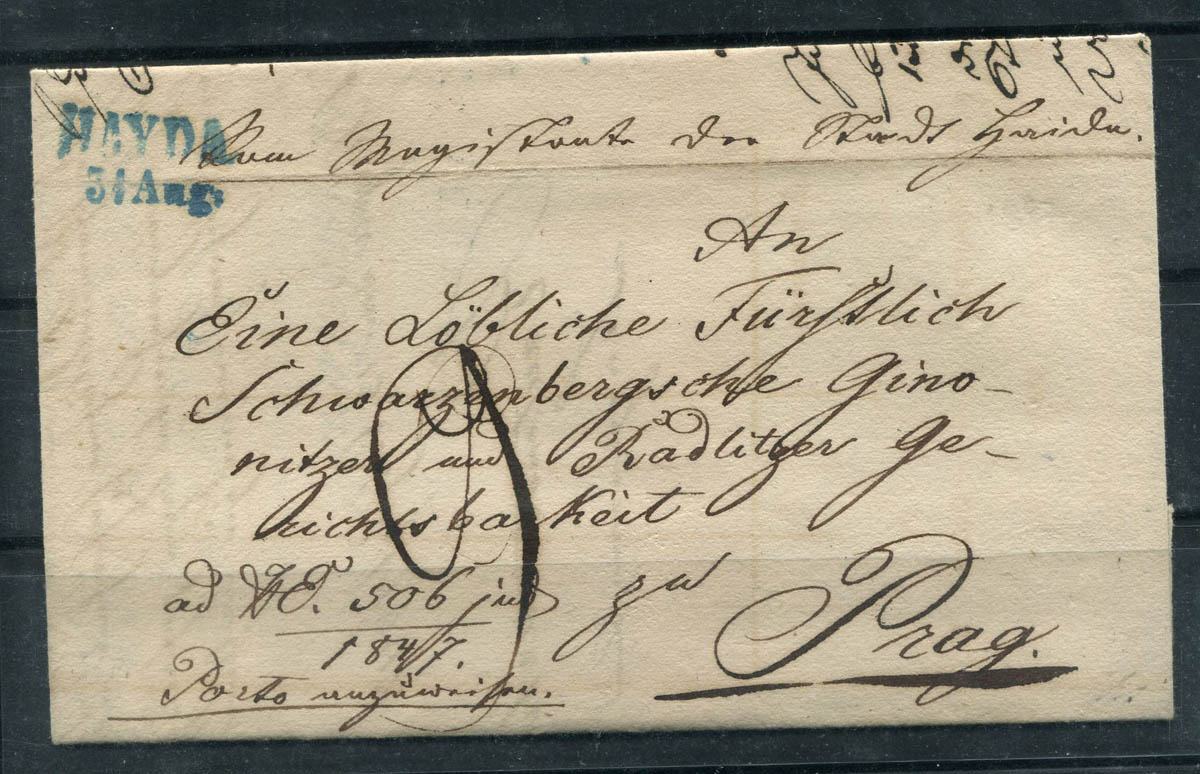 HAYDA
31 Aug:
Vom Magistrate der Stadt Haida.
An
Eine Löbliche Fürstlich
Schwarzenbergsche Gino-
nitzer und Radlitzer Ge-
richtsbarkeit
9
ad NE. 506 jud
1847.
zu
Prag.
Porto anzuweisen.